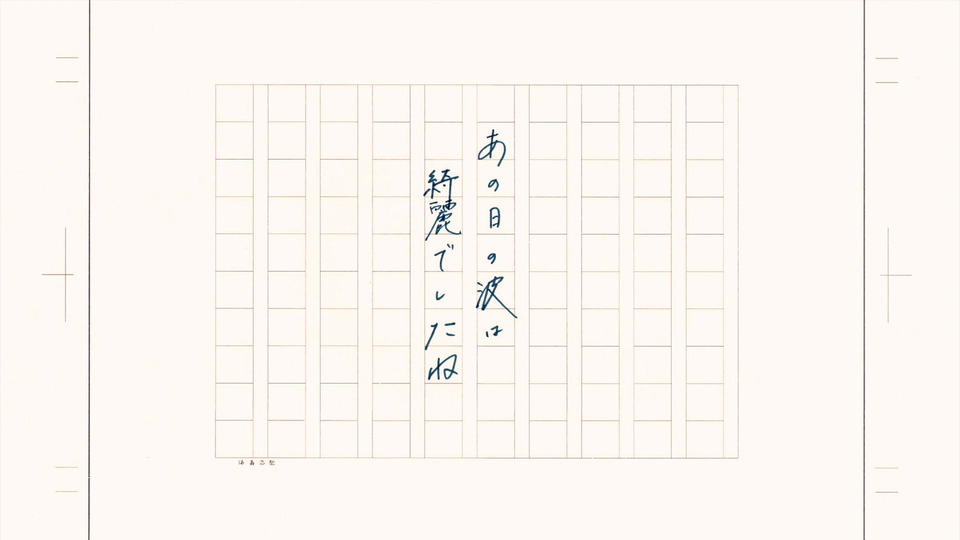 あの日の波は
綺麗でしたね